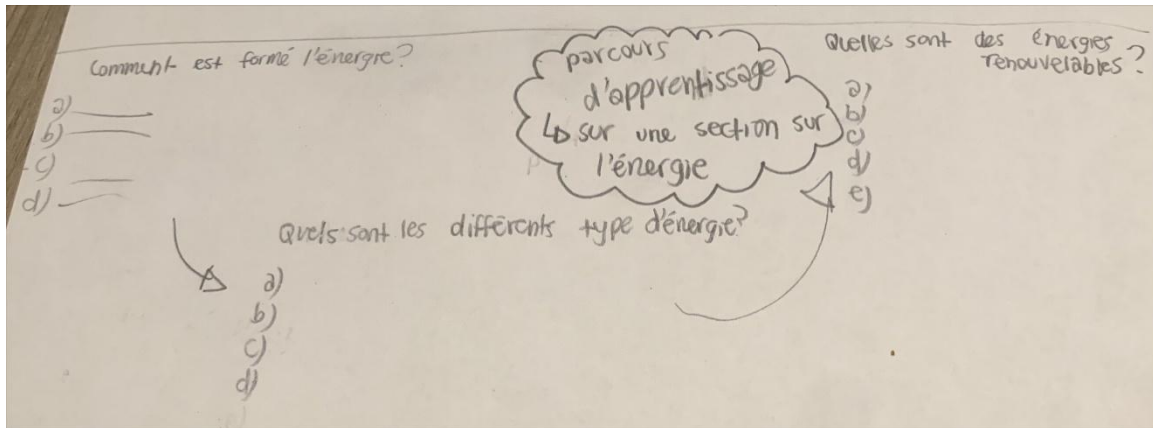 Comment est formé l'énergie?
a)
b)
c)
d)
parcours
d'apprentissage
↳ sur une section sur
l'énergie
Quelles sont des énergies
renouvelables?
a)
b)
c)
d)
e)
Quels sont les différents type d'énergie?
a)
b)
c)
d)